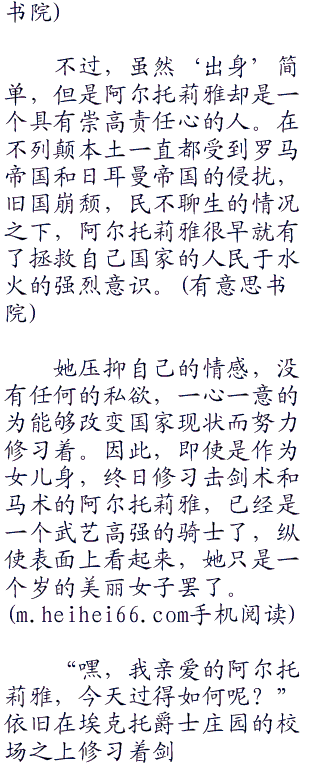 书院)
不过，虽然‘出身’简
单，但是阿尔托莉雅却是一
个具有崇高责任心的人。在
不列颠本土一直都受到罗马
帝国和日耳曼帝国的侵扰，
旧国崩颓，民不聊生的情况
之下，阿尔托莉雅很早就有
了拯救自己国家的人民于水
火的强烈意识。(有意思书
院)
她压抑自己的情感，没
有任何的私欲，一心一意的
为能够改变国家现状而努力
修习着。因此，即使是作为
女儿身，终日修习击剑术和
马术的阿尔托莉雅，已经是
一个武艺高强的骑士了，纵
使表面上看起来，她只是一
个岁的美丽女子罢了。
(m.heihei66.com手机阅读)
“嘿，我亲爱的阿尔托
莉雅，今天过得如何呢？”
依旧在埃克托爵士庄园的校
场之上修习着剑